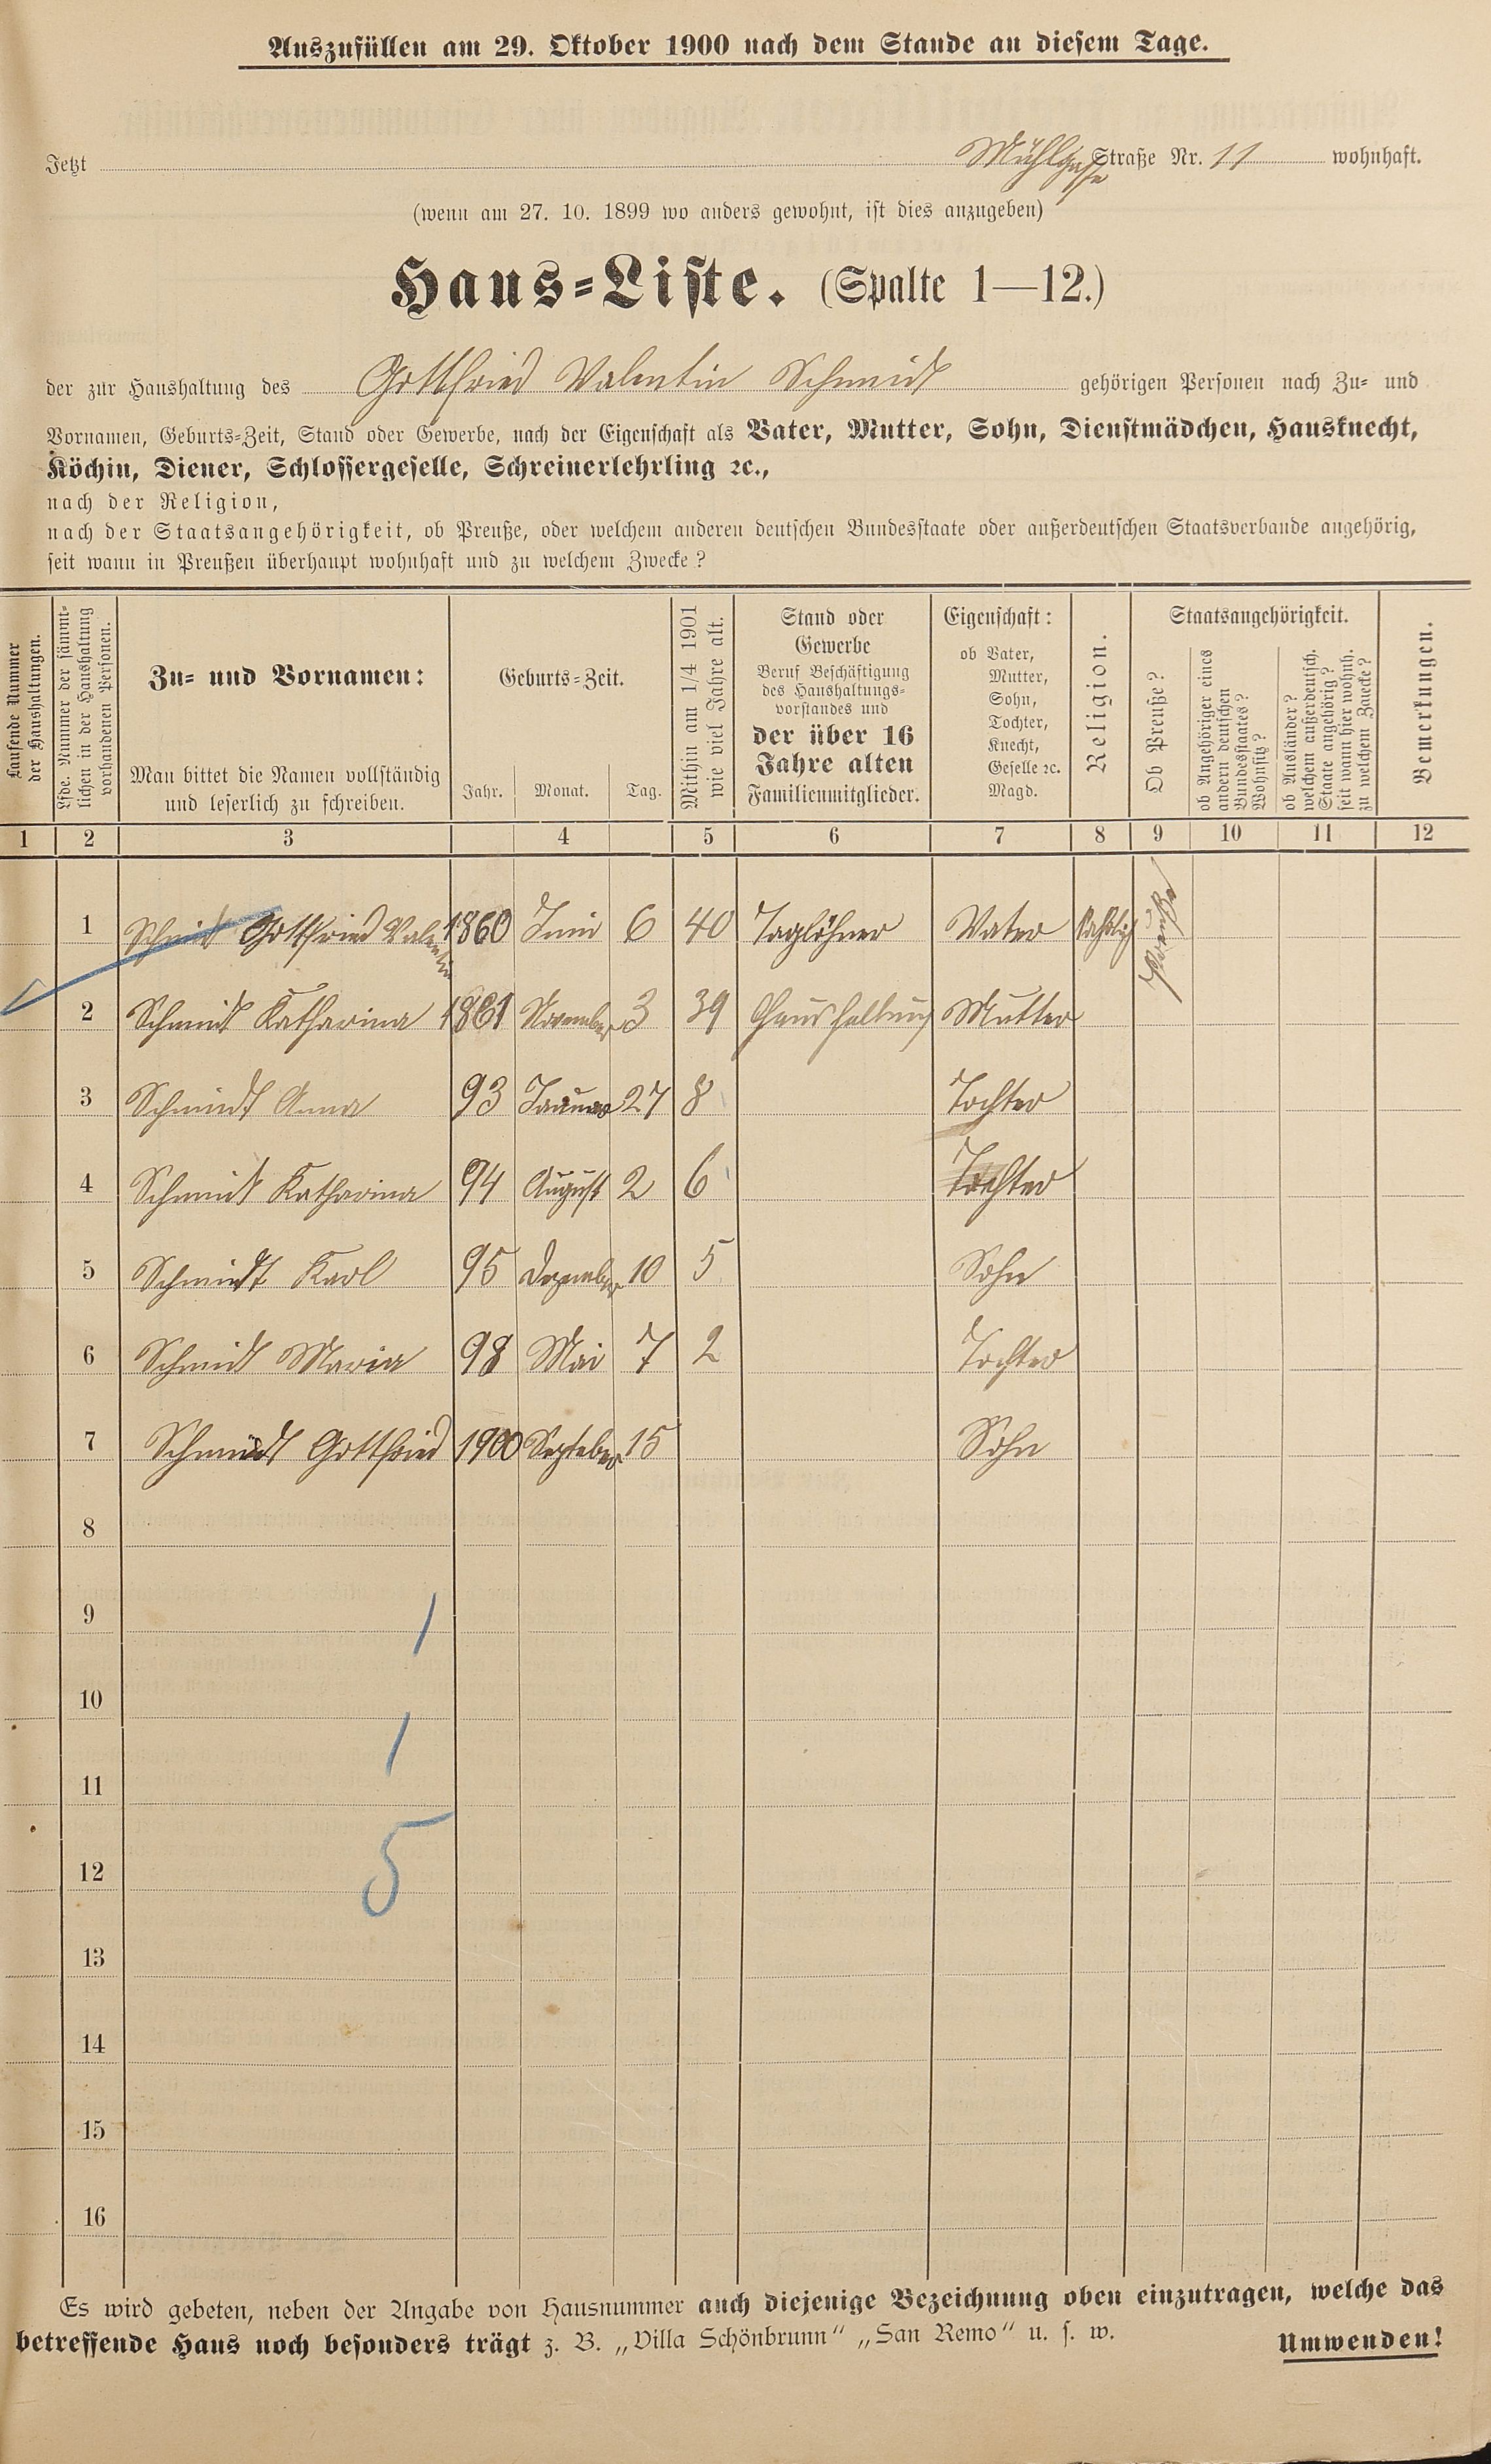 Auszufüllen am 29. Oktober 1900 nach dem Stande an diesem Tage.
Jetzt Mühlgasse Straße Nr. 11 wohnhaft.
(wenn am 27. 10. 1899 wo anders gewohnt, ist dies anzugeben)
Haus-Liste. (Spalte 1—12.)
der zur Haushaltung des Gottfried Valentin Schmidt gehörigen Personen nach Zu- und
Vornamen, Geburts-Zeit, Stand oder Gewerbe, nach der Eigenschaft als Vater, Mutter, Sohn, Dienstmädchen, Hausknecht,
Köchin, Diener, Schlossergeselle, Schreinerlehrling ꝛc.,
nach der Religion,
nach der Staatsangehörigkeit, ob Preuße, oder welchem anderen deutschen Bundesstaate oder außerdeutschen Staatsverbande angehörig,
seit wann in Preußen überhaupt wohnhaft und zu welchem Zwecke?
Laufende Nummer
der Haushaltungen.
Lfde. Nummer der sämmt-
lichen in der Haushaltung
vorhandenen Personen.
Zu- und Vornamen:
Man bittet die Namen vollständig
und leserlich zu schreiben.
Geburts-Zeit.
Jahr. Monat. Tag.
Mithin am 1/4 1901
wie viel Jahre alt.
Stand oder
Gewerbe
Beruf Beschäftigung
des Haushaltungs-
vorstandes und
der über 16
Jahre alten
Familienmitglieder.
Eigenschaft:
ob Vater,
Mutter,
Sohn,
Tochter,
Knecht,
Geselle ꝛc.
Magd.
Religion.
Staatsangehörigkeit.
Ob Preuße?
ob Angehöriger eines
andern deutschen
Bundesstaates?
Wohnsitz?
ob Ausländer?
welchem außerdeutsch.
Staate angehörig?
seit wann hier wohnh.
zu welchem Zwecke?
Bemerkungen.
1 2 3 4 5 6 7 8 9 10 11 12
1 Schmidt Gottfried Valentin 1860 Juni 6 40 Taglöhner Vater Kathlich Preuße
2 Schmidt Katharina 1861 November 3 39 Haushaltung Mutter
3 Schmidt Anna 93 Januar 27 8 Tochter
4 Schmidt Katharina 94 August 2 6 Tochter
5 Schmidt Karl 95 Dezember 10 5 Sohn
6 Schmidt Maria 98 Mai 7 2 Tochter
7 Schmidt Gottfried 1900 Septeber 15 Sohn
8
9 1
10
11 1
12 5
13
14
15
16
Es wird gebeten, neben der Angabe von Hausnummer auch diejenige Bezeichnung oben einzutragen, welche das
betreffende Haus noch besonders trägt z. B. „Villa Schönbrunn“ „San Remo“ u. s. w. Umwenden!